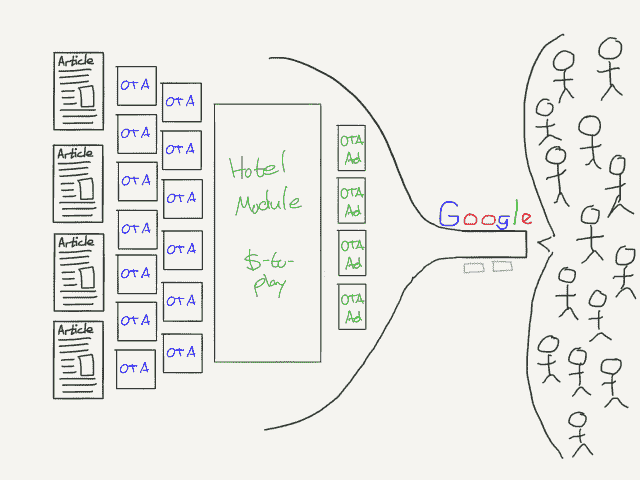 Article
Article
Article
Article
OTA
OTA
OTA
OTA
OTA
OTA
OTA
OTA
OTA
OTA
OTA
OTA
OTA
Hotel
Module
$-to-
play
OTA
Ad
OTA
Ad
OTA
Ad
OTA
Ad
Google